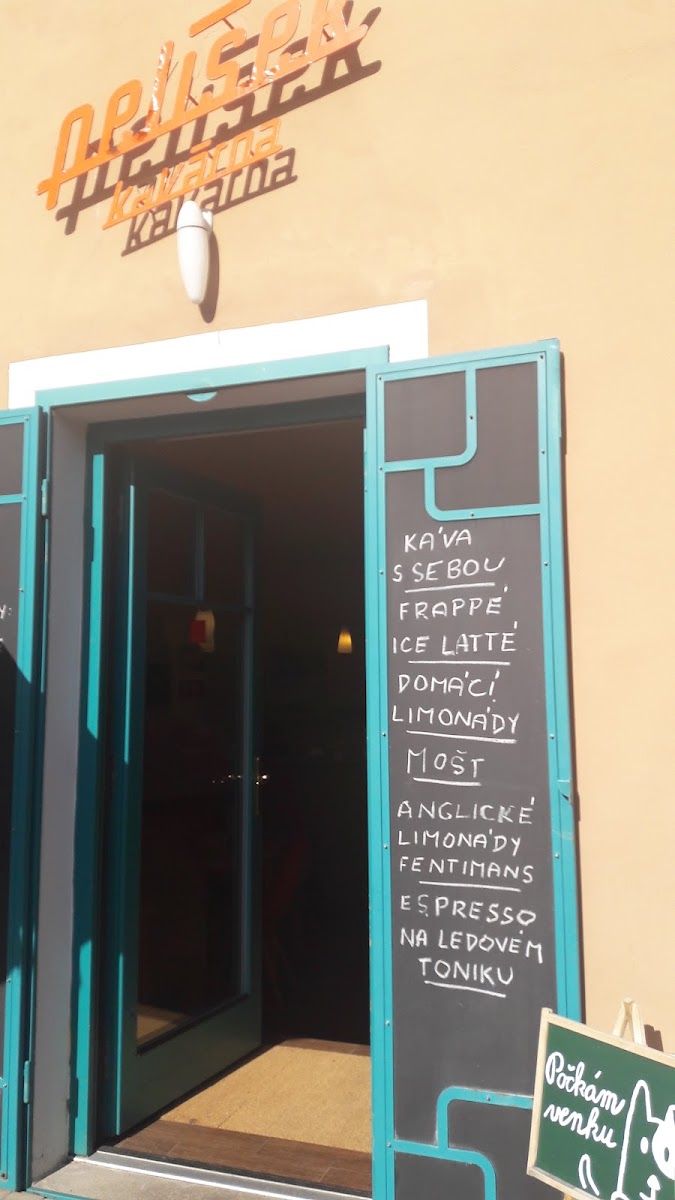 pelíšek
kavárna
KÁVA
S SEBOU
FRAPPÉ
ICE LATTÉ
DOMÁCÍ
LIMONÁDY
MOŠT
ANGLICKÉ
LIMONÁDY
FENTIMANS
ESPRESSO
NA LEDOVÉM
TONIKU
Počkám
venku